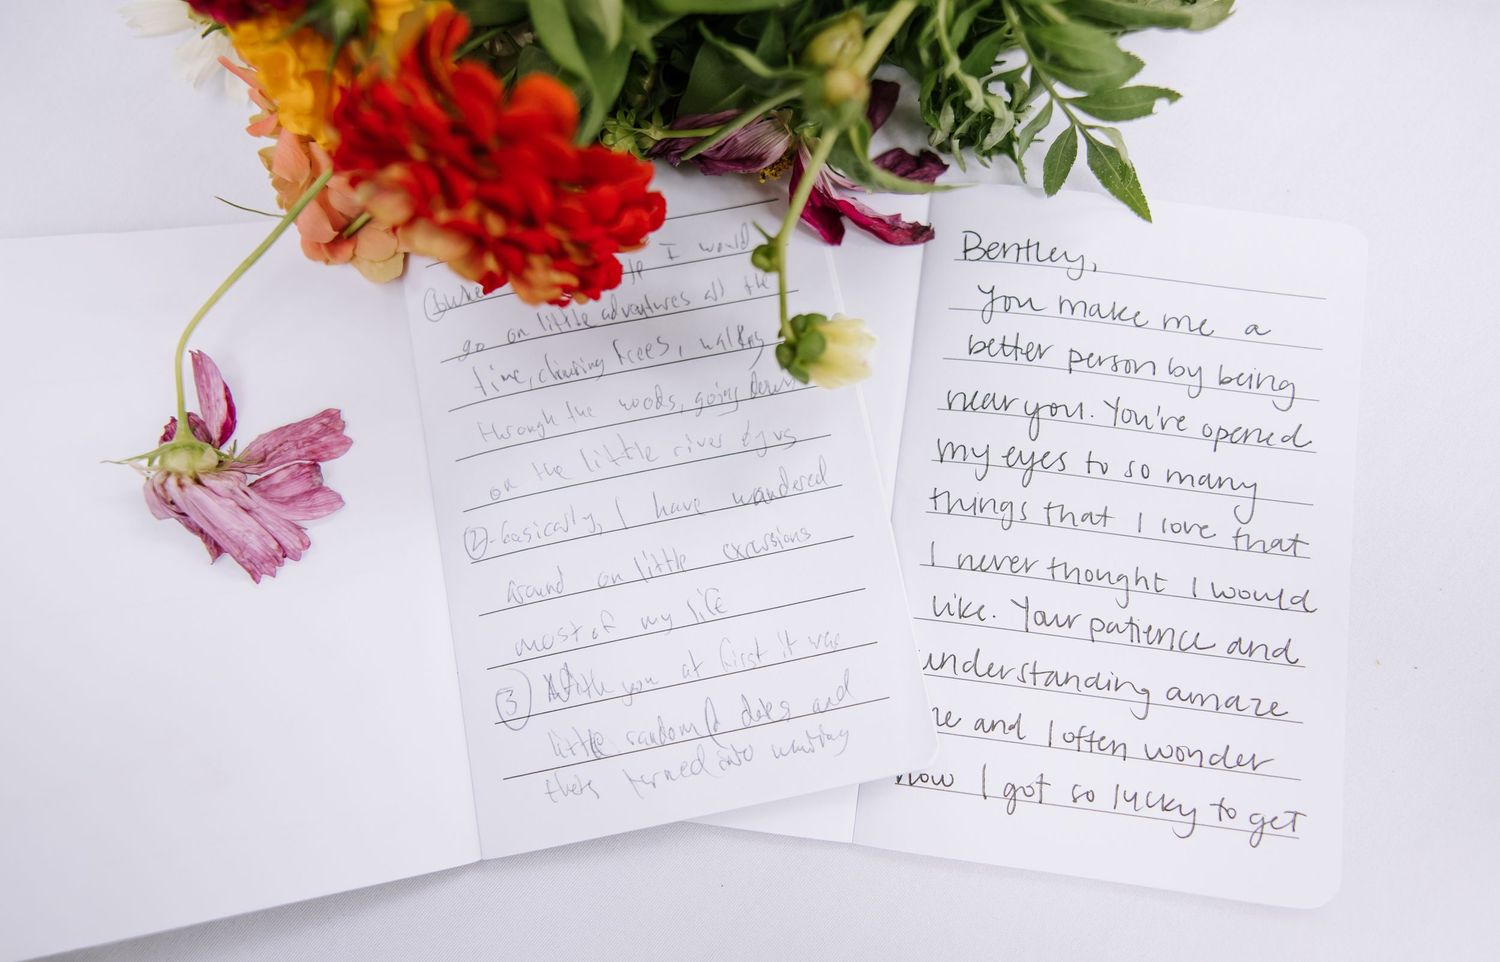 I would
go on little adventures all the
time, climbing trees, walking
through the woods, going down
on the little river by us
② -basically, I have wandered
around on little excursions
most of my life
③ With you at first it was
little random dates and
turned into wanting
Bentley,
You make me a
better person by being
near you. You've opened
my eyes to so many
things that I love that
I never thought I would
like. Your patience and
understanding amaze
me and I often wonder
how I got so lucky to get